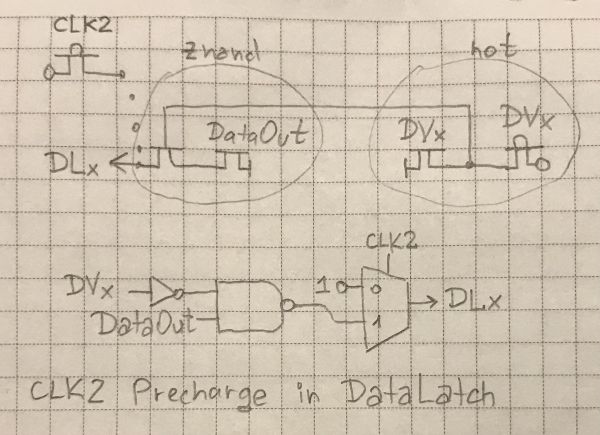 CLK2
znand
not
DataOut
DVx
DVx
DLx
CLK2
DVx
10
0
DLx
DataOut
1
CLK2 Precharge in DataLatch